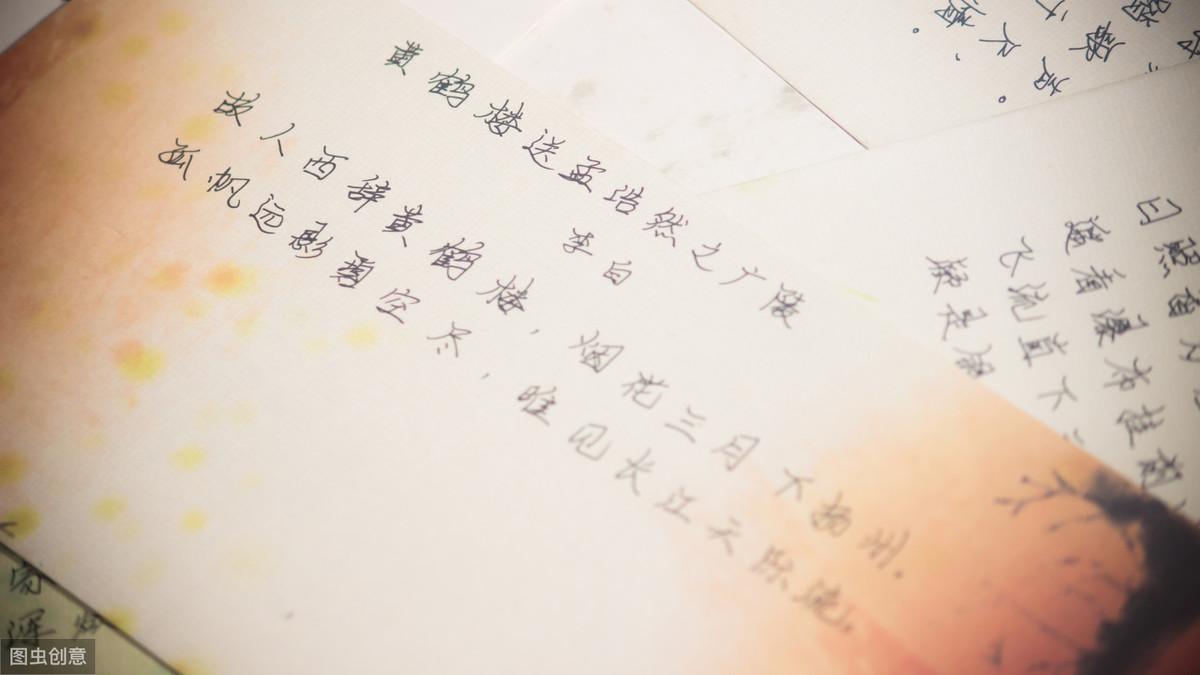 黄鹤楼送孟浩然之广陵
李白
故人西辞黄鹤楼,烟花三月下扬州.
孤帆远影碧空尽,唯见长江天际流.
日照香
遥看瀑布挂前
飞流直下
疑是银
图虫创意